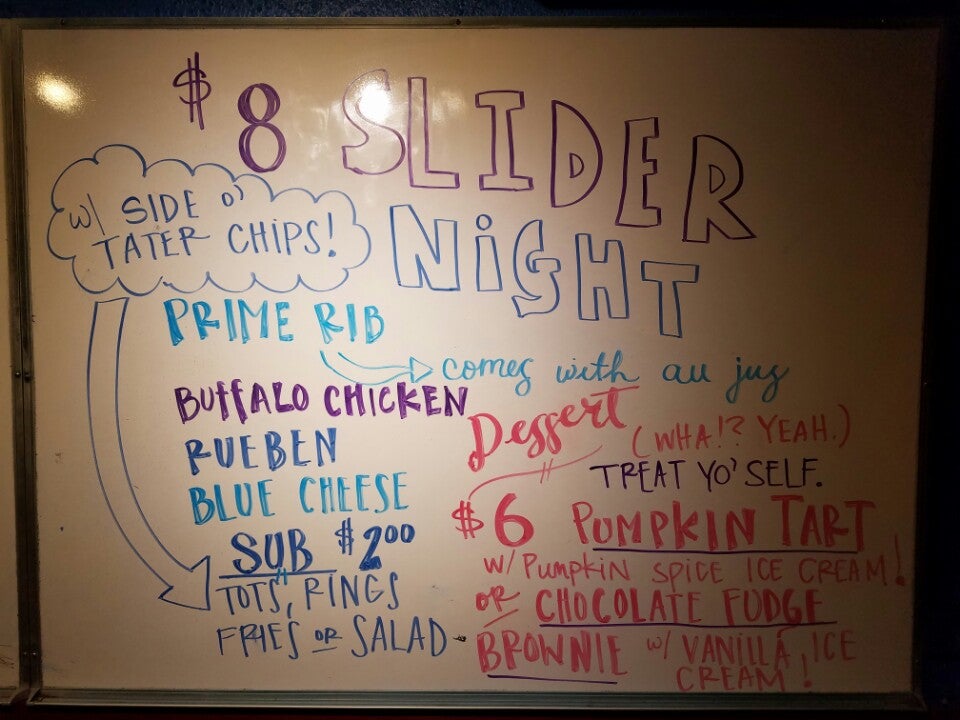 $8 SLIDER
NiGHT
w/ SIDE O'
TATER CHIPS!
PRIME RIB
comes with au jus
BUFFALO CHICKEN
RUEBEN
BLUE CHEESE
SUB $2.00
TOTS, RINGS
FRIES OR SALAD
Dessert (WHA!? YEAH.)
TREAT YO' SELF.
$6 PUMPKIN TART
w/ Pumpkin SPICE ICE CREAM!
OR CHOCOLATE FUDGE
BROWNIE w/ VANILLA ICE
CREAM!